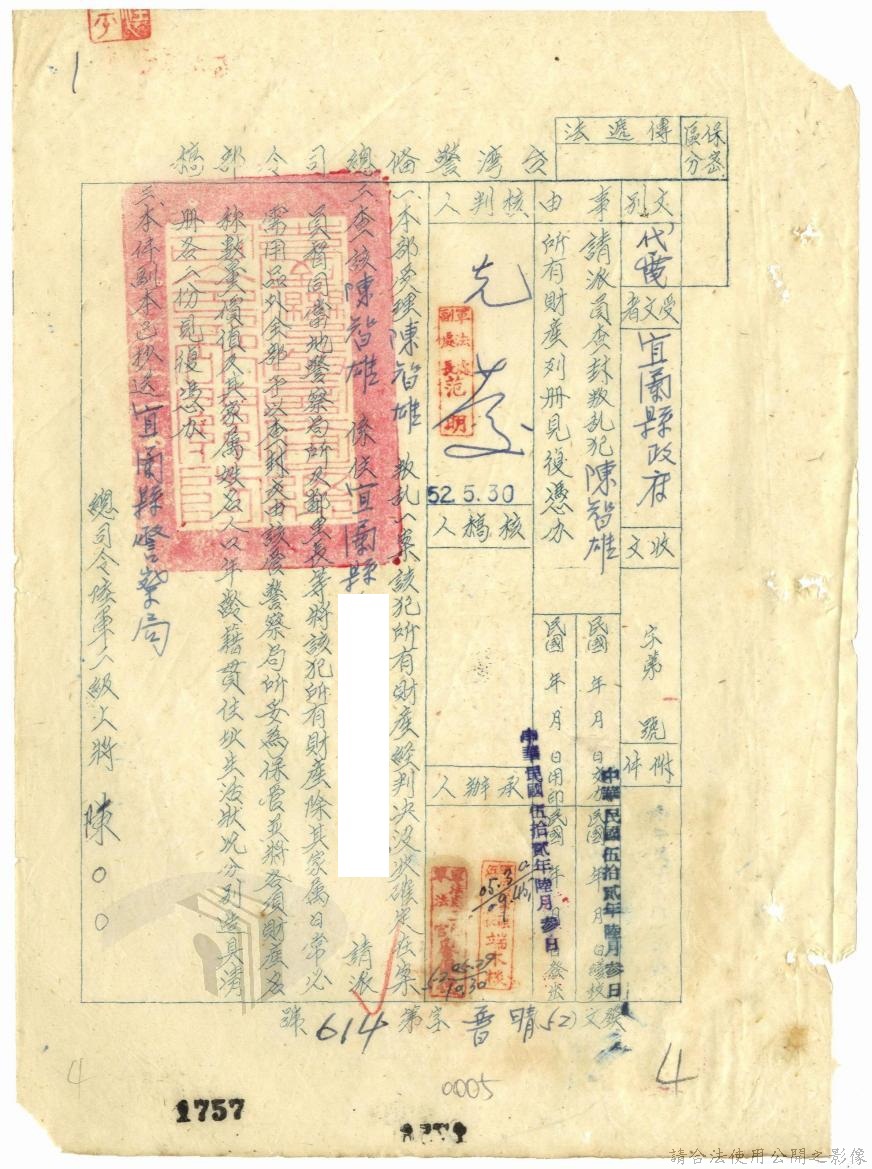 保密區分
傳遞法
台灣警備總司令部稿
文別
代電
受文者
宜蘭縣政府
收文
字第 號
附件
事由
請派員查封叛乱犯陳智雄
所有財產列冊見復憑办
民國 年 月 日
民國 年 月 日
中華民國伍拾貳年陸月參日
中華民國伍拾貳年陸月參日
核判人
軍法處副處長范明
52.5.30
核稿人
承辦人
發文
(52)
晴普字第614號
一、本部受理陳智雄 叛乱一案該犯所有財產経判決没收確定在案
二、查該陳智雄 係住宜蘭縣 請派
員督同當地警察局所及鄰里長等將該犯所有財產除其家属日常必
需用品外全部予以查封交由該管警察局所妥為保管並將各項財產名
称數量價值及其家属姓名人口年齡籍貫住址生活狀况分別造具清
冊各二份見復憑办
三、本件副本已抄送宜蘭縣警察局
總司令陸軍二級上將 陳○○
1
4
4
0005
1757
請合法使用公開之影像